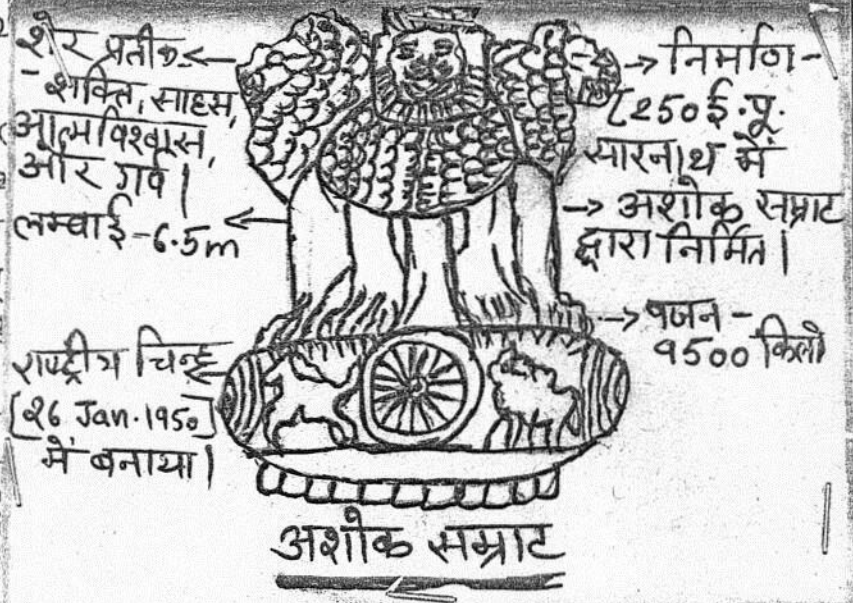 शेर प्रतीक
- शक्ति, साहस,
आत्मविश्वास,
और गर्व।
लम्बाई - 6.5m
राष्ट्रीय चिन्ह
[26 Jan. 1950]
में बनाया।
→ निर्माण -
[250 ई.पू.
सारनाथ में
→ अशोक सम्राट
द्वारा निर्मित।
→ वजन -
9500 किलो
अशोक सम्राट